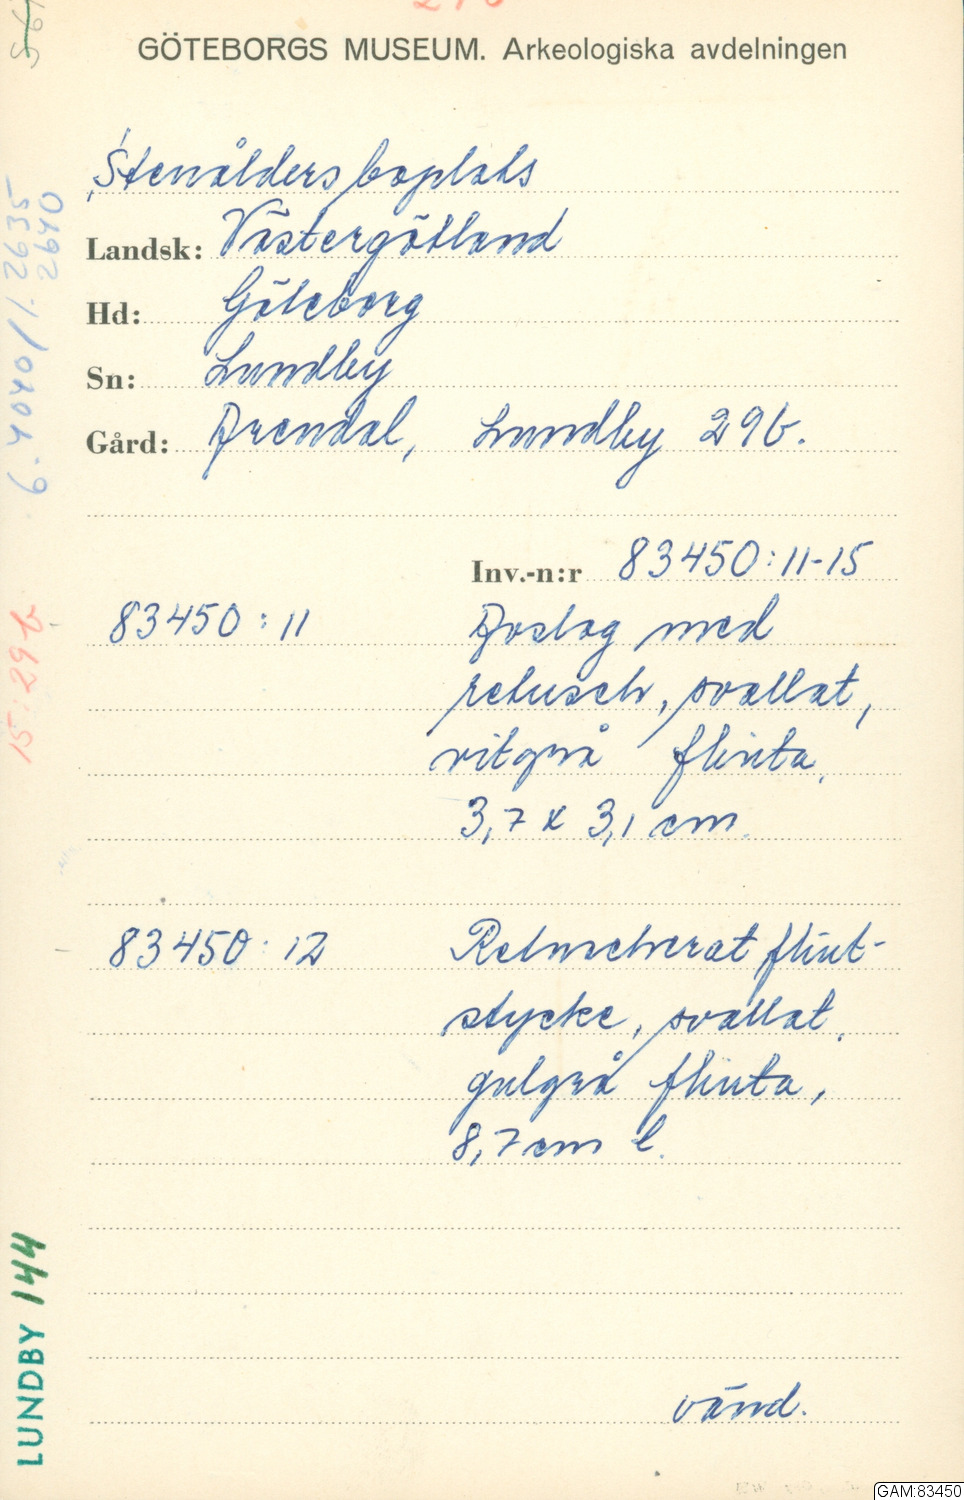 GÖTEBORGS MUSEUM. Arkeologiska avdelningen
Stenåldersboplats
Landsk: Västergötland
Hd: Göteborg
Sn: Lundby
Gård: Arendal, Lundby 29b.
Inv.-n:r 83450:11-15
83450:11 Avslag med
retusch, svallat,
vitgrå flinta,
3,7 x 3,1 cm.
83450:12 Retuscherat flint-
stycke, svallat,
gulgrå flinta,
8,7 cm l.
vänd.
LUNDBY 144
15:29b
6.4040/1.2635
2640
GAM:83450